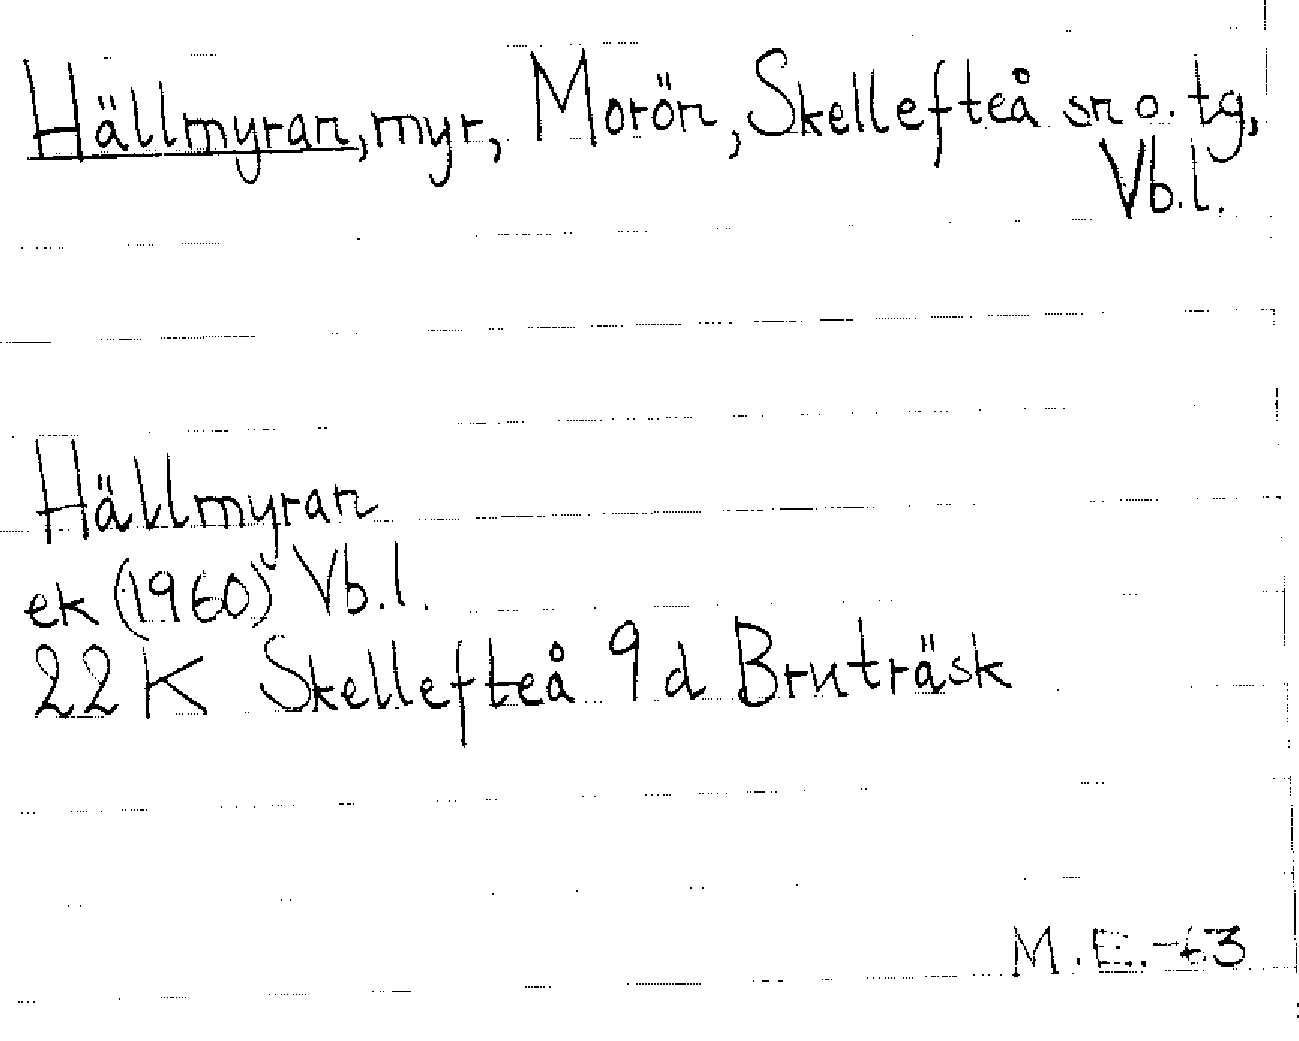 Hällmyran, myr, Morön, Skellefteå sn o. tg,
Vb.l.
Hällmyran
ek (1960) Vb.l.
22K Skellefteå 9d Bruträsk
M.E.-63